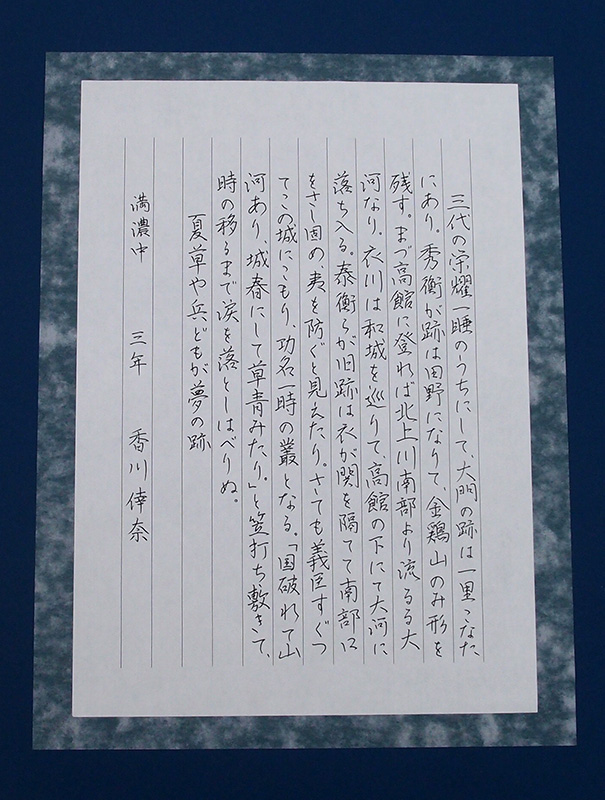 三代の栄耀一睡のうちにして、大門の跡は一里こなた
にあり。秀衡が跡は田野になりて、金鶏山のみ形を
残す。まづ高館に登れば北上川南部より流るる大
河なり。衣川は和城を巡りて、高館の下にて大河に
落ち入る。泰衡らが旧跡は衣が関を隔てて南部口
をさし固め、夷を防ぐと見えたり。さても義臣すぐつ
てこの城にこもり、功名一時の叢となる。「国破れて山
河あり、城春にして草青みたり。」と笠打ち敷きて、
時の移るまで涙を落としはべりぬ。
夏草や兵どもが夢の跡
満濃中 三年 香川倖奈